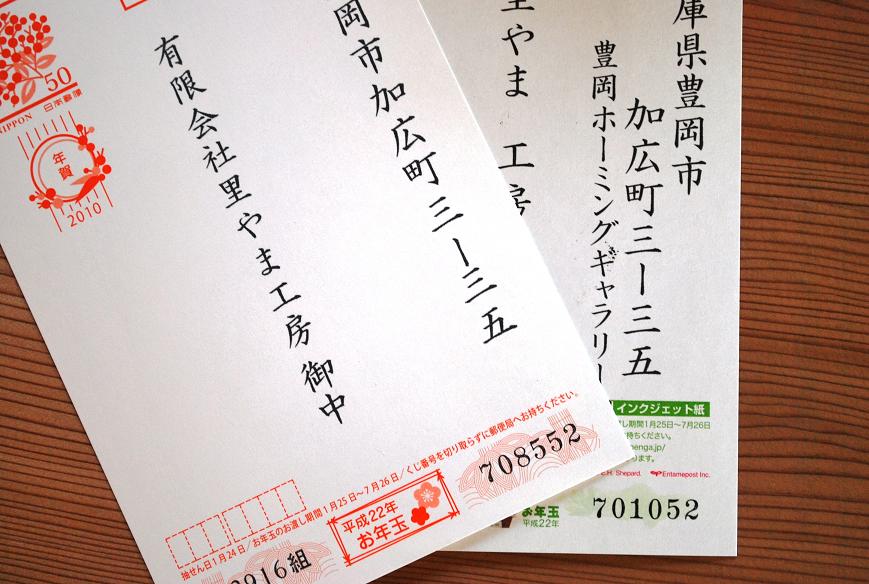 50
日本郵便
NIPPON
年賀
2010
岡市加広町三ー三五
有限会社里やま工房 御中
抽せん日1月24日/お年玉のお渡し期間1月25日~7月26日/くじ番号を切り取らずに郵便局へお持ちください。
平成22年
お年玉
916組
708552
庫県豊岡市
加広町三ー三五
豊岡ホーミングギャラリー
里やま 工房
インクジェット紙
し期間1月25日~7月26日
持ちください。
enga.jp/
ります。
E.H. Shepard.
Entamepost Inc.
お年玉
平成22年
701052